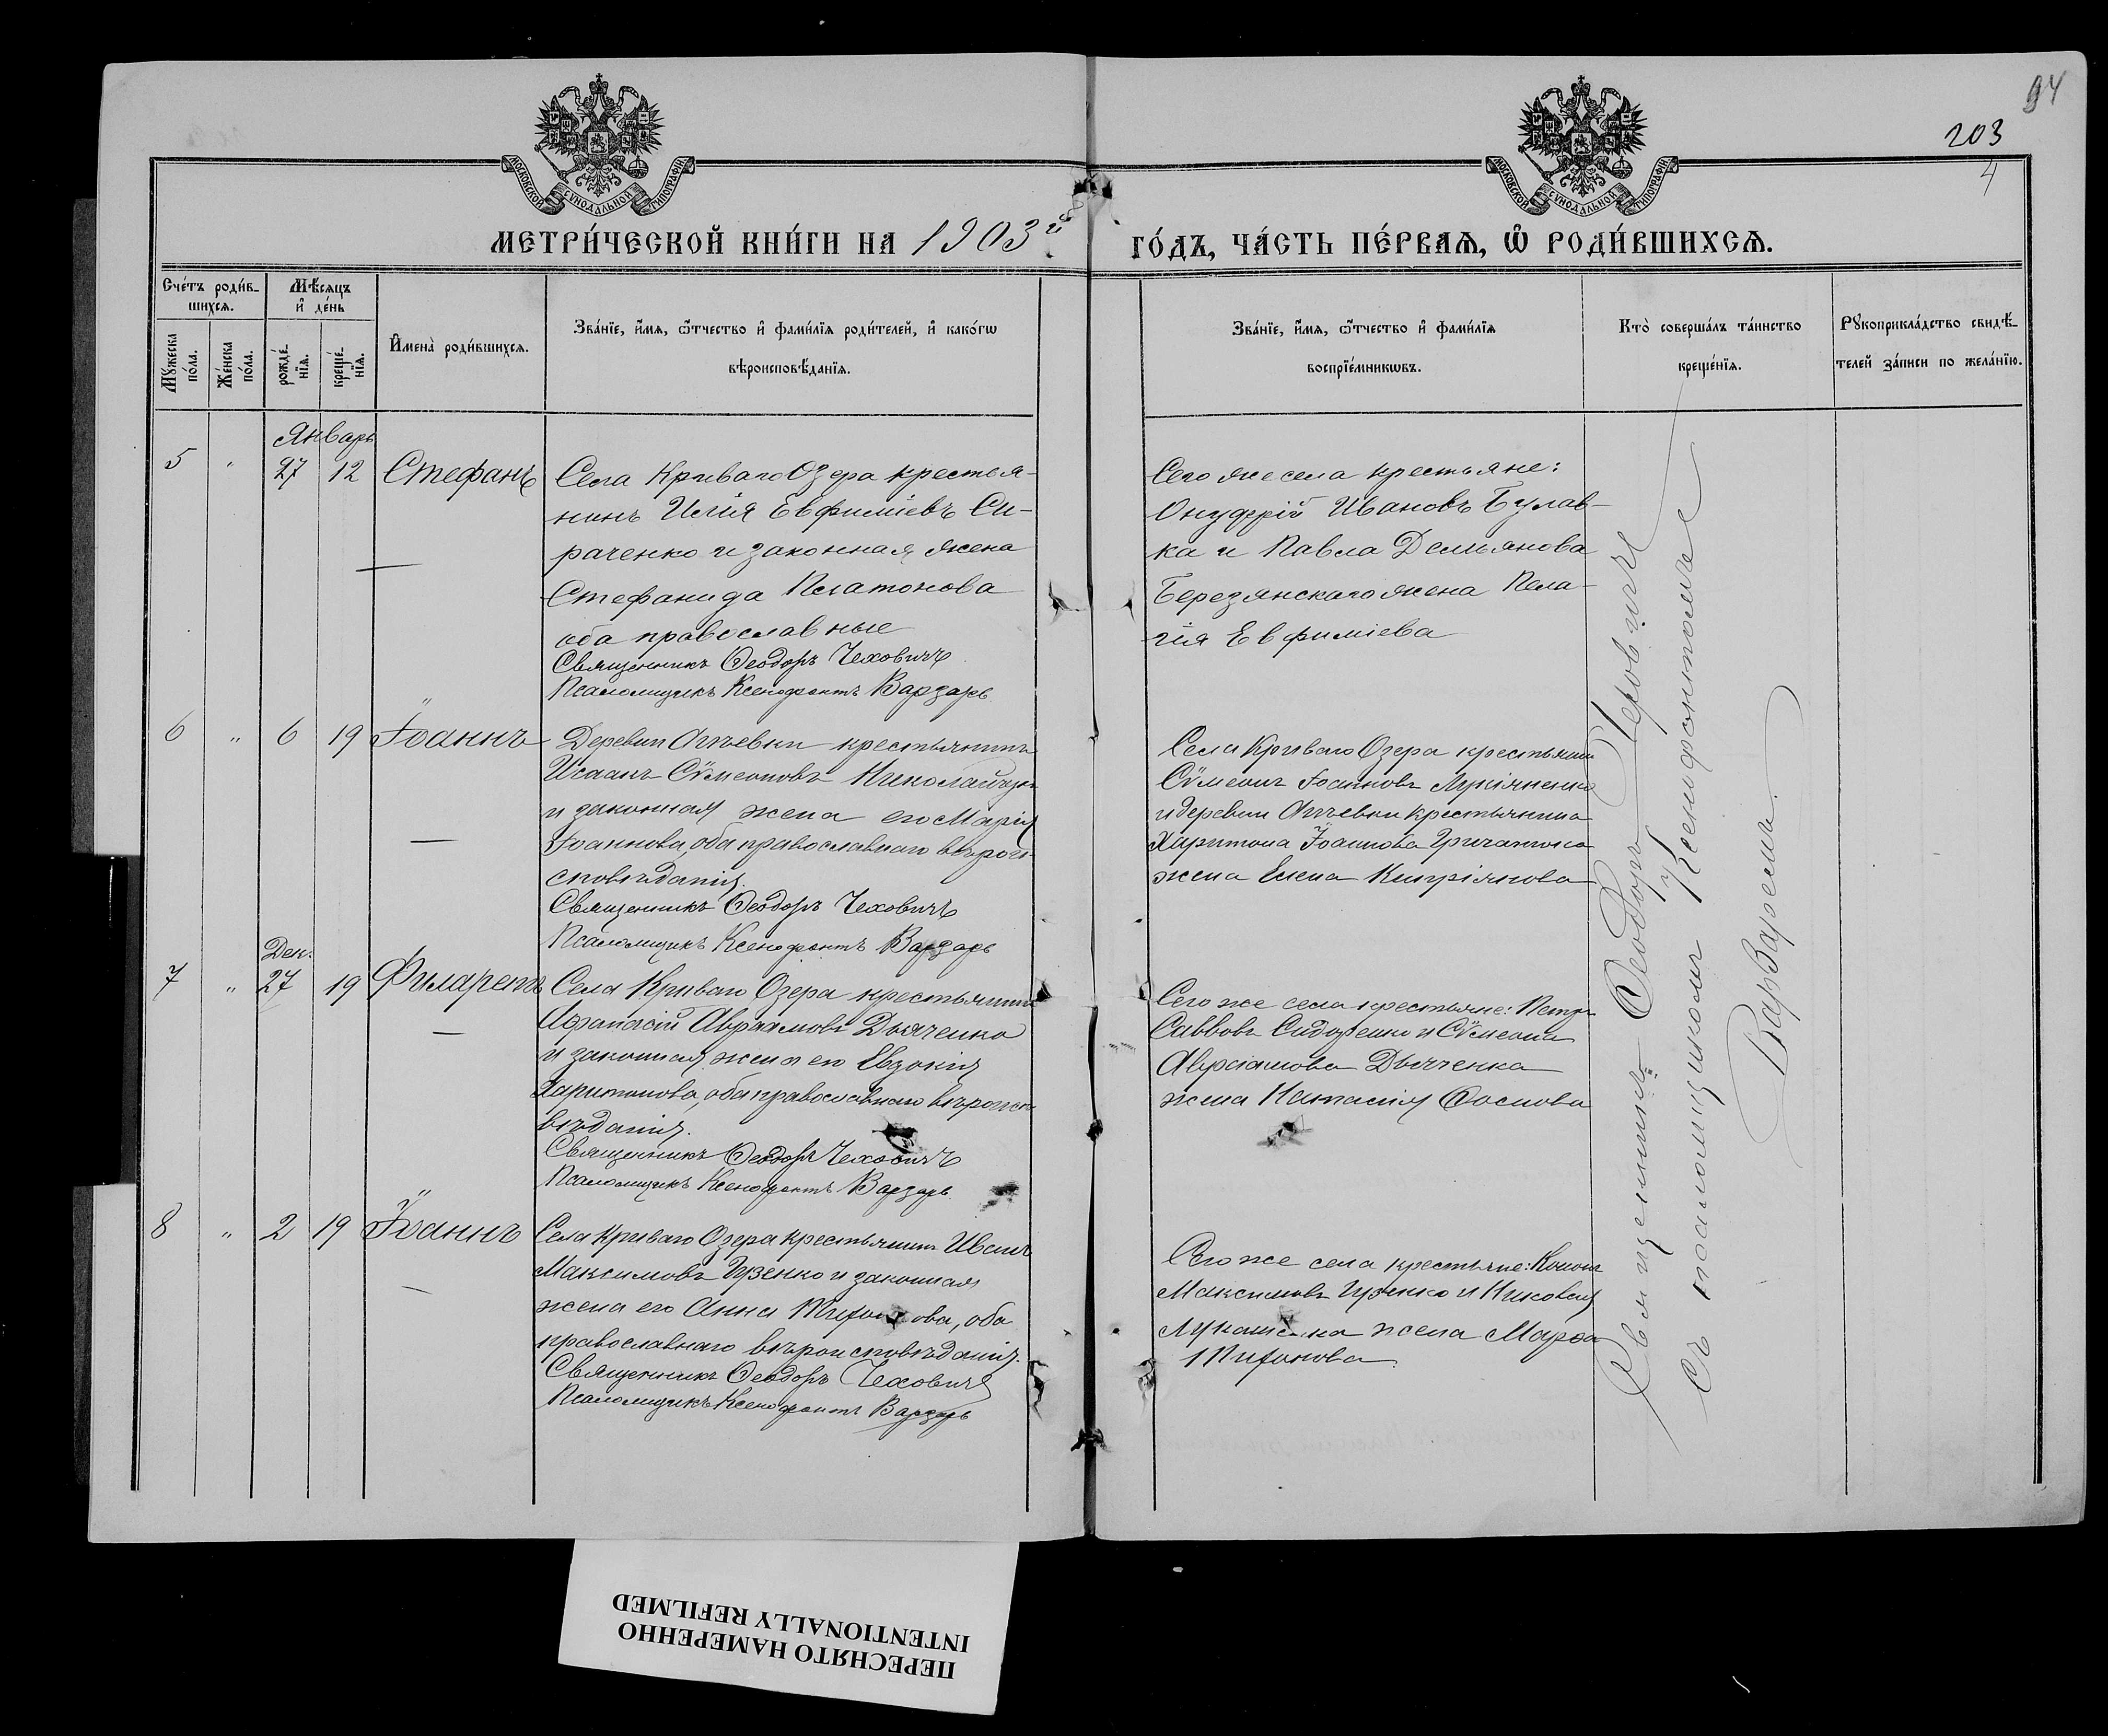 94
203
4
МОСКОВСКОЙ СѴНОДАЛЬНОЙ ТИПОГРАФІИ
МОСКОВСКОЙ СѴНОДАЛЬНОЙ ТИПОГРАФІИ
МЕТРИ́ЧЕСКОЙ КНИ́ГИ НА 1903й
ГО́ДЪ, ЧА́СТЬ ПЕ́РВАѦ, Ѿ РОДИ́ВШИХСѦ.
Сче́тъ роди́в-
шихсѧ.
Мѣ́сѧцъ
и҆ де́нь
Мꙋ́жеска
по́ла.
Же́нска
по́ла.
рожде́-
нїѧ.
креще́-
нїѧ.
И҆мена̀ роди́вшихсѧ.
Зва́нїе, и҆́мѧ, ѻ҆́тчество и҆ фамѝлїѧ роди́телей, и҆ како́гѡ
вѣроисповѣ́данїѧ.
Зва́нїе, и҆́мѧ, ѻ҆́тчество и҆ фамѝлїѧ
воспрїе́мникѡвъ.
Кто̀ соверша́лъ та́инство
креще́нїѧ.
Рꙋкоприкла́дство свидѣ́-
телей за́писи по жела́нїю.
Январь
5 " 27 12 Стефанъ
Села Криваго Озера крестья-
нинъ Илія Евфиміевъ Си-
раченко и законная жена
Стефанида Платонова
оба православные
Священникъ Ѳеодоръ Чеховичъ
Псаломщикъ Ксенофонтъ Варзарь
Сего же села крестьяне:
Онуфрій Ивановъ Булав-
ка и Павла Демьянова
Березянскаго жена Пела-
гія Евфиміева
6 " 6 19 Іоаннъ
Деревни крестьянинъ
Сѵмеоновъ Николайчукъ
и законная жена его Марія
Іоаннова, оба православнаго вѣрои-
сповѣданія.
Священникъ Ѳеодоръ Чеховичъ
Псаломщикъ Ксенофонтъ Варзарь
Села Криваго Озера крестьянинъ
Сѵмеонъ Іоанновъ Лукіяненко
и деревни крестьянина
Харитона Іоаннова
жена Елена Кипріянова
Дек.
7 " 27 19 Филаретъ
Села Криваго Озера крестьянинъ
Аѳанасій Авраамовъ Дьяченко
и законная жена его Евдокія
Харитонова, оба православнаго вѣроиспо-
вѣданія.
Священникъ Ѳеодоръ Чеховичъ
Псаломщикъ Ксенофонтъ Варзарь
Сего же села крестьяне: Петръ
Саввовъ Сидоренко и Сѵмеона
Авраамова Дьяченка
жена Наталія
8 " 2 19 Іоаннъ
Села Криваго Озера крестьянинъ Иванъ
Максимовъ Гузенко и законная
жена его Анна оба
православнаго вѣроисповѣданія.
Священникъ Ѳеодоръ Чеховичъ
Псаломщикъ Ксенофонтъ Варзарь
Сего же села крестьяне: Кононъ
Максимовъ Гузенко и Николая
жена Марѳа
Священникъ Ѳеодоръ
съ псаломщикомъ Ксенофонтомъ
Варзаремъ.
ПЕРЕСНЯТО НАМЕРЕННО
INTENTIONALLY REFILMED